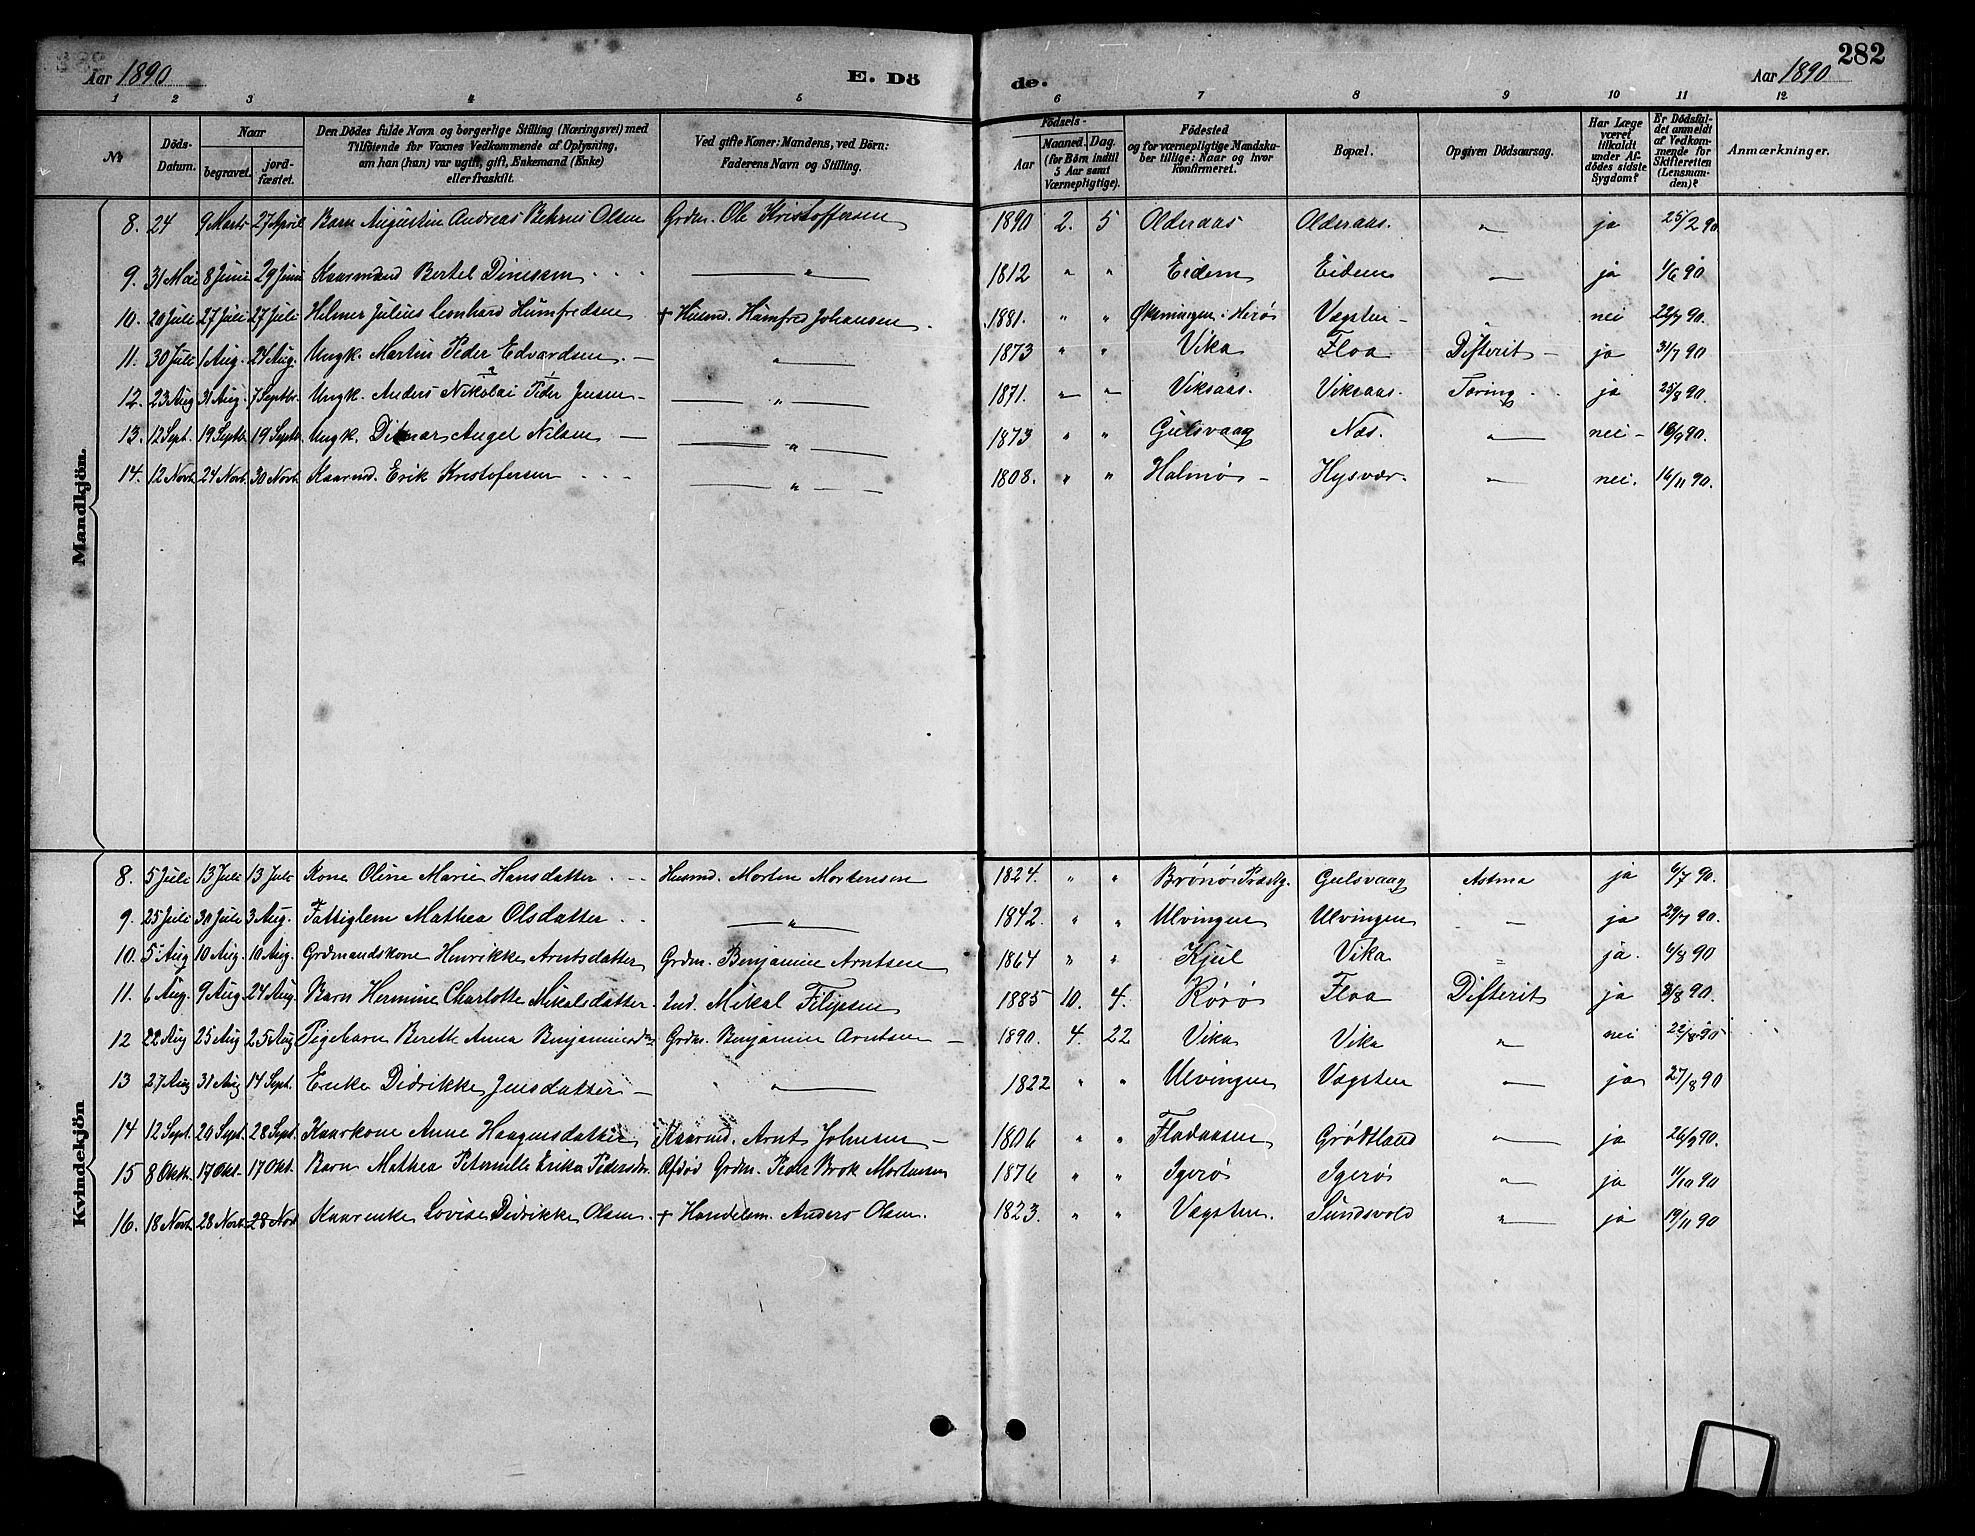 282
Aar 1890 E. Dö de. Aar 1890
1 2 3 4 5 6 7 8 9 10 11 12
No
Döds-Datum.
Naar
begravet.
jord-fæstet.
Den Dödes fulde Navn og borgerlige Stilling (Næringsvei) med
Tilföiende for Voxnes Vedkommende af Oplysning,
om han (hun) var ugift, gift, Enkemand (Enke)
eller fraskilt.
Ved gifte Koner: Mandens, ved Börn:
Faderens Navn og Stilling.
Födsels-
Aar
Maaned. Dag.
(for Börn indtil
5 Aar samt
Værnepligtige).
Födested
og for værnepligtige Mandska-
ber tillige: Naar og hvor
konfirmeret.
Bopæl.
Opgiven Dödsaarsag.
Har Læge
været
tilkaldt
under Af-
dödes sidste
Sygdom?
Er Dödsfal-
det anmeldt
af Vedkom-
mende for
Skifteretten
(Lensman-
den)?
Anmærkninger.
Mandkjön.
8. 24 9 Marts 27 April Barn Augustin Andreas Behrns Olsen Grdm. Ole Kristoffersen 1890 2. 5 Olderaas Olderaas. " ja 25/2 90
9. 31 Mai 8 Juni 29 Juni Kaarmand Bertel Dinesen " 1812 " " Eidem Eidem " ja 1/6 90
10. 20 Juli 27 Juli 27 Juli Hilmer Julius Leonhard Humfredsen + Husmd. Humfred Johansen. 1881. " " Øksningen i Herø Vægsten - " nei 22/7 90.
11. 30 Juli 1 Aug. 24 Aug. Ungk. Martin Peder Edvardsen. " 1873 " " Vika Floa Difterit - ja 31/7 90
12. 23 Aug 31 Aug. 7 Septbr. Ungk. Anders Nikolai Peder Jensen - " 1871. " " Viksaas. Viksaas. Tæring. ja 25/8 90.
13. 12 Sept. 19 Septb. 19 Septb. Ungk. Ditmar Angel Nilsen " 1873 " " Gulsvaag Næs. " nei - 18/9 90.
14. 12 Novb. 24 Novb. 30 Novb. Kaarmd. Erik Kristofersen " 1808. " " Halmø - Hysvær. " nei. 16/11 90.
Kvindekjön
8. 5 Juli 13 Juli 13 Juli Kone Oline Marie Hansdatter. Husmd. Morten Mortensen 1824. " " Brønø Præstg. Gulsvaag Astma ja 6/7 90.
9. 25 Juli 30 Juli 3 Aug. Fattiglem Mathea Olsdatter " 1842. " " Ulvingen Ulvingen - ja 29/7 90.
10. 5 Aug 10 Aug. 10 Aug. Grdmandskone Henrikke Arntsdatter Grdm. Benjamin Arntsen 1864 " " Kjul Vika " ja. 6/8 90
11. 6 Aug. 9 Aug 24 Aug. Barn Hermine Charlotte Mikalsdatter. Ind. Mikal Filipsen 1885 10. 4. Rørø Floa Difterit ja 8/8 90.
12 22 Aug 25 Aug 25 Aug Pigebarn Berette Anna Benjaminsdtr. Grdm. Benjamin Arntsen - 1890. 4. 22 Vika Vika " nei 22/8 90
13 27 Aug 31 Aug 14 Sept. Enke Didrikke Jensdatter - " 1822 " " Ulvingen Vægsten " ja 27/8 90
14 12 Sept. 20 Sept. 28 Sept. Kaarkone Anne Haagensdatter Kaarmd. Arnt Johnsen - 1806 " " Fladaasen Grødtland " ja 26/9 90.
15 8 Oktb. 17 Okt. 17 Okt. Barn Mathea Peternille Erika Pedersdtr. Afdød Grdm. Peder Brok Mortensen 1876 " " Igerø Igerø " ja 11/10 90
16. 18 Novb. 28 Novb. 28 Nov. Kaarenke Lovise Didrikke Olsen. + Handelsm. Anders Olsen. 1823. " " Vægsten. Sundsvold " ja 19/11 90